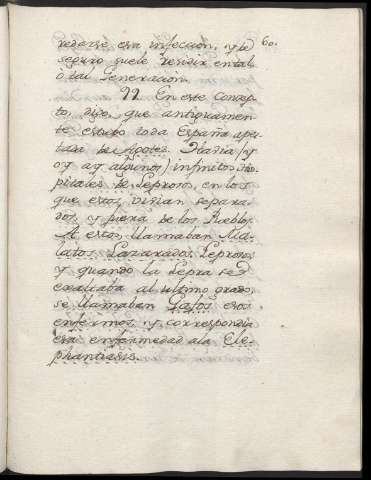 rederse esa infeccion, y de 60.
seguro suele residir en tal
o tal Generacion.
22 En este Concep-
to, dixe que antiguamen-
te estubo toda España apes-
tada de Agotes. Habia (y
oy ay algunos) infinitos Hos-
pitales de Leprosos, en los
que estos vivian separa-
dos, y fuera de los Pueblos.
A estos llamaban Ma-
latos, Lazarados, Leprosos
y quando la Lepra se
exaltaba al ultimo grado,
se llamaban Gafos esos
enfermos, y correspondia
esa enfermedad ala Ele-
phantiasis.